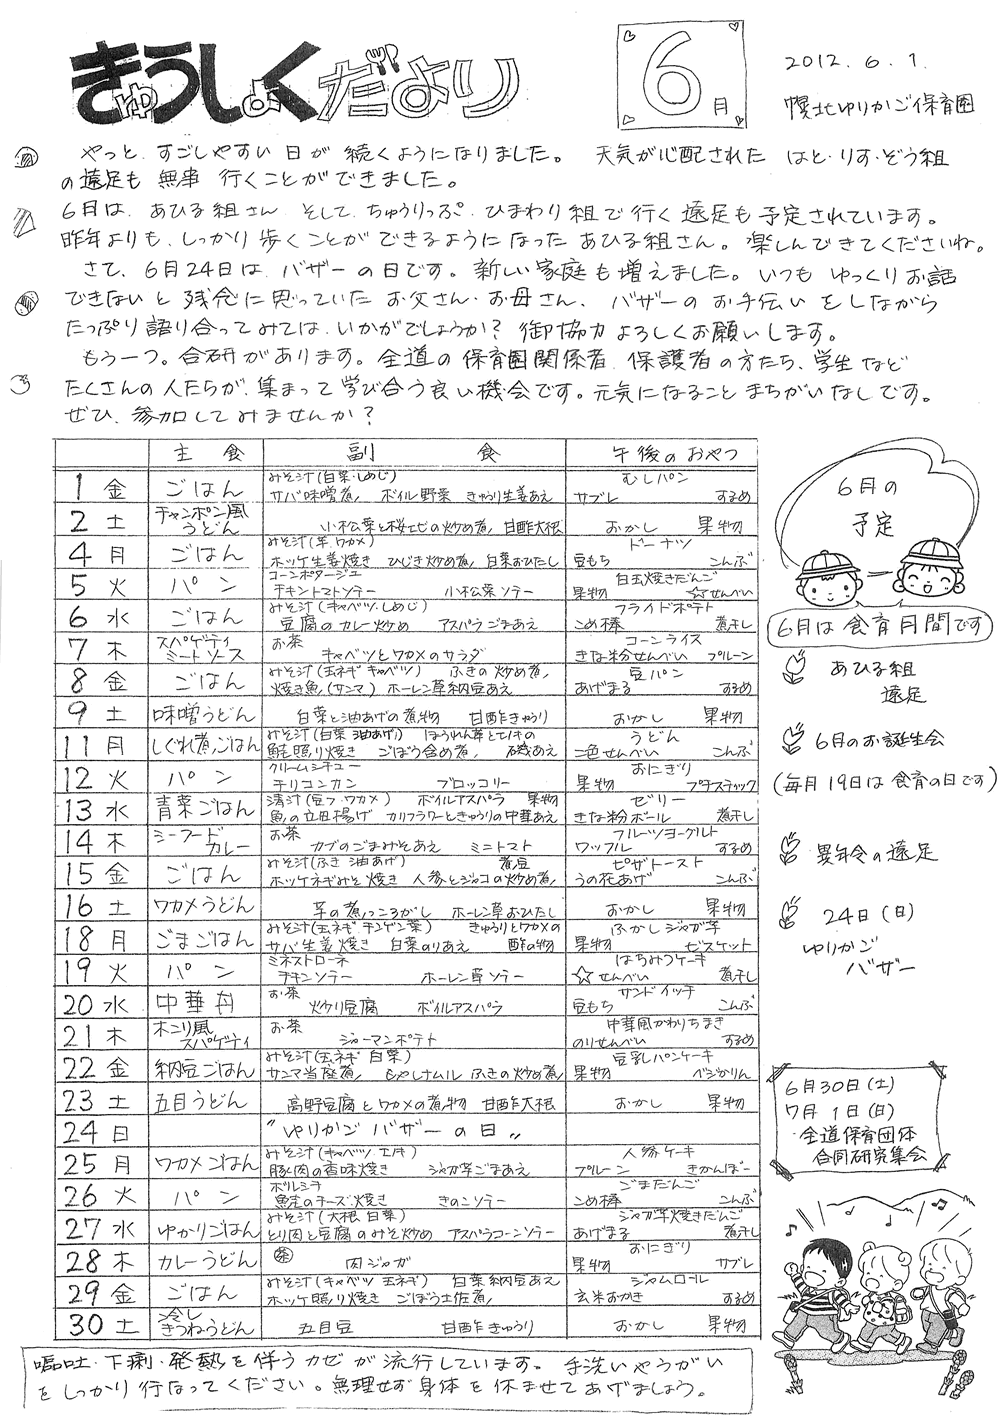 きゅうしょくだより
6月
2012.6.1.
幌北ゆりかご保育園
やっと、すごしやすい日が続くようになりました。 天気が心配された はと・りす・ぞう組
の遠足も無事 行くことができました。
6月は、あひる組さん そして、ちゅうりっぷ・ひまわり組で行く遠足も予定されています。
昨年よりも、しっかり歩くことができるようになったあひる組さん。楽しんできてくださいね。
さて、6月24日は、バザーの日です。新しい家庭も増えました。いつもゆっくりお話
できないと残念に思っていたお父さん・お母さん、バザーのお手伝いをしながら
たっぷり語り合ってみては、いかがでしょうか?御協力よろしくお願いします。
もう一つ。合研があります。全道の保育園関係者、保護者の方たち、学生など
たくさんの人たちが、集まって学び合う良い機会です。元気になることまちがいなしです。
ぜひ、参加してみませんか?
主食 副食 午後のおやつ
1 金 ごはん みそ汁(白菜・しめじ) サバ味噌煮 ボイル野菜 きゅうり生姜あえ むしパン サブレ するめ
2 土 チャンポン風うどん 小松菜と桜エビの炒め煮 甘酢大根 おかし 果物
4 月 ごはん みそ汁(芋、ワカメ) ホッケ生姜焼き ひじき炒め煮 白菜おひたし ドーナツ 豆もち こんぶ
5 火 パン コーンポタージュ チキントマトソテー 小松菜ソテー 白玉焼きだんご 果物 ☆せんべい
6 水 ごはん みそ汁(キャベツ・しめじ) 豆腐のカレー炒め アスパラごまあえ フライドポテト こめ棒 煮干し
7 木 スパゲティミートソース お茶 キャベツとワカメのサラダ コーンライス きな粉せんべい プルーン
8 金 ごはん みそ汁(玉ネギ キャベツ) ふきの炒め煮 焼き魚(サンマ) ホーレン草納豆あえ 豆パン あげまる するめ
9 土 味噌うどん 白菜と油あげの煮物 甘酢きゅうり おかし 果物
11 月 しぐれ煮ごはん みそ汁(白菜 油あげ) ほうれん草とエノキの磯あえ 鮭照り焼き ごぼう含め煮 うどん 二色せんべい こんぶ
12 火 パン クリームシチュー チリコンカン ブロッコリー おにぎり 果物 プチスティック
13 水 青菜ごはん 清汁(豆フ・ワカメ) ボイルアスパラ 果物 魚の立田揚げ カリフラワーときゅうりの中華あえ ゼリー きな粉ボール 煮干し
14 木 シーフードカレー お茶 カブのごまみそあえ ミニトマト フルーツヨーグルト ワッフル するめ
15 金 ごはん みそ汁(ふき 油あげ) 煮豆 ホッケネギみそ焼き 人参とジャコの炒め煮 ピザトースト うの花あげ こんぶ
16 土 ワカメうどん 芋の煮っころがし ホーレン草おひたし おかし 果物
18 月 ごまごはん みそ汁(玉ネギ チンゲン菜) きゅうりとワカメの酢の物 サバ生姜焼き 白菜のりあえ ふかしジャガ芋 果物 ビスケット
19 火 パン ミネストローネ チキンソテー ホーレン草ソテー はちみつケーキ ☆せんべい 煮干し
20 水 中華丼 お茶 炒り豆腐 ボイルアスパラ サンドイッチ 豆もち こんぶ
21 木 木こり風スパゲティ お茶 ジャーマンポテト 中華風かわりちまき のりせんべい するめ
22 金 納豆ごはん みそ汁(玉ネギ 白菜) サンマ当座煮 もやしナムル ふきの炒め煮 豆乳パンケーキ 果物 ベジかりん
23 土 五目うどん 高野豆腐とワカメの煮物 甘酢大根 おかし 果物
24 日 “ゆりかごバザーの日”
25 月 ワカメごはん みそ汁(キャベツ エノキ) 豚肉の香味焼き ジャガ芋ごまあえ 人参ケーキ プルーン きかんぼー
26 火 パン ボルシチ 鮭のチーズ焼き きのこソテー ごまだんご こめ棒 こんぶ
27 水 ゆかりごはん みそ汁(大根 白菜) とり肉と豆腐のみそ炒め アスパラコーンソテー ジャガ芋焼きだんご あげまる 煮干し
28 木 カレーうどん 茶 肉ジャガ おにぎり 果物 サブレ
29 金 ごはん みそ汁(キャベツ 玉ネギ) 白菜納豆あえ ホッケ照り焼き ごぼう土佐煮 ジャムロール 玄米おかき するめ
30 土 冷しきつねうどん 五目豆 甘酢きゅうり おかし 果物
6月の
予定
6月は食育月間です
あひる組
遠足
6月のお誕生会
(毎月19日は食育の日です)
異年令の遠足
24日(日)
ゆりかご
バザー
6月30日(土)
7月1日(日)
全道保育団体
合同研究集会
嘔吐・下痢・発熱を伴うカゼが流行しています。手洗いやうがい
をしっかり行なってください。無理せず身体を休ませてあげましょう。